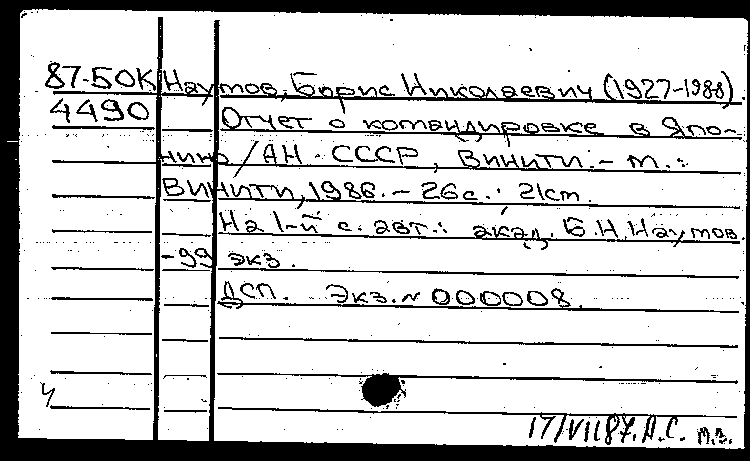 87-50К Наумов, Борис Николаевич (1927-1988).
4490 Отчет о командировке в Япо-
нию / АН СССР, ВИНИТИ. - М.:
ВИНИТИ, 1986. - 26с.; 21см.
На 1-й с. авт.: акад. Б.Н. Наумов.
- 99 экз.
ДСП. Экз. N 000008.
17/VII 87. А.С.